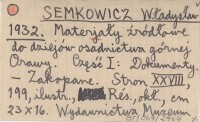 SEMKOWICZ Władysław
1932. Materjały źródłowe
do dziejów osadnictwa górnej
Orawy. Część I: Dokumenty
- Zakopane. Stron XXVIII,
199, ilustr., Rés., okł., cm
23 x 16. Wydawnictwa Muzeum